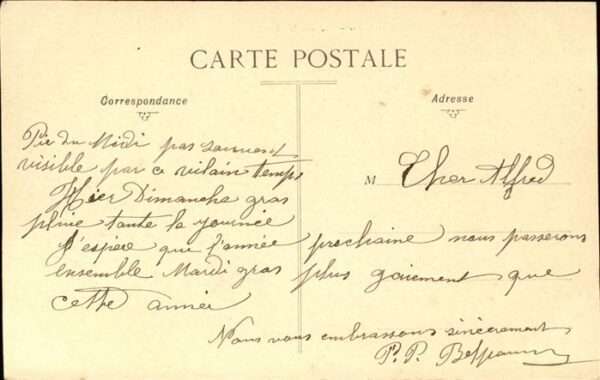 CARTE POSTALE
Correspondance
Adresse
M Cher Alfred
Pic du Midi pas souvent
visible par ce vilain temps
Hier Dimanche gras
pluie toute la journée
J'espère que l'année prochaine nous passerons
ensemble Mardi gras plus gaiement que
cette année
Nous vous embrassons sincèrement
P. P.